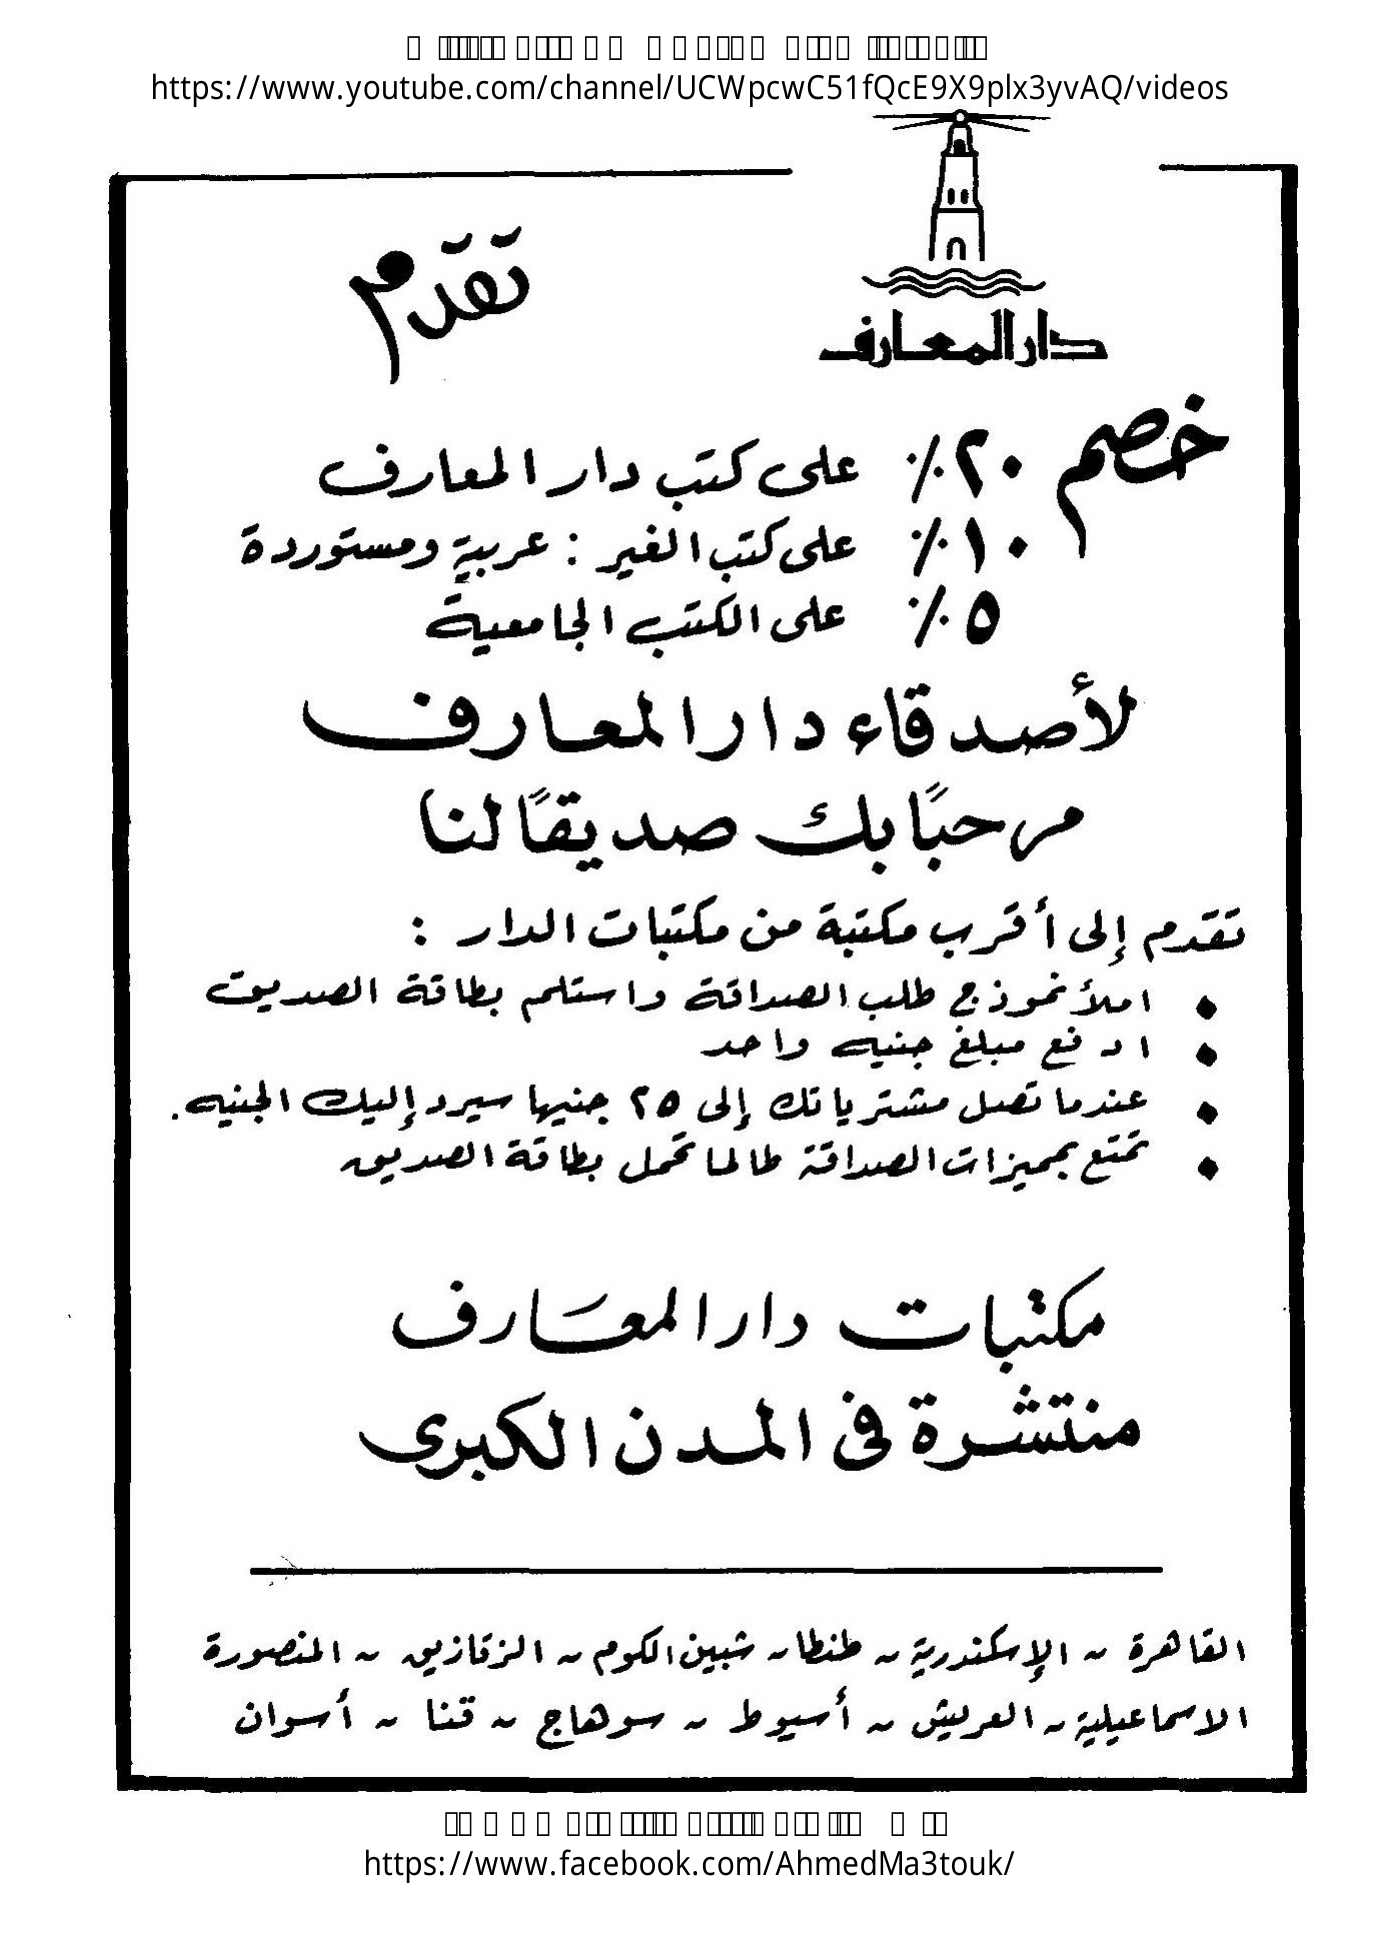 https://www.youtube.com/channel/UCWpcwC51fQcE9X9plx3yvAQ/videos
دار المعارف
تقدم
خصم ٢٠٪ على كتب دار المعارف
١٠٪ على كتب الغير : عربية ومستوردة
٥٪ على الكتب الجامعية
لأصدقاء دار المعارف
مرحبًا بك صديقًا لنا
تقدم إلى أقرب مكتبة من مكتبات الدار :
• املأ نموذج طلب الصداقة واستلم بطاقة الصديق
• ادفع مبلغ جنيه واحد
• عندما تصل مشترياتك إلى ٢٥ جنيها سيرد إليك الجنيه.
• تمتع بمميزات الصداقة طالما تحمل بطاقة الصديق
مكتبات دار المعارف
منتشرة فى المدن الكبرى
القاهرة ~ الإسكندرية ~ طنطا ~ شبين الكوم ~ الزقازيق ~ المنصورة
الاسماعيلية ~ العريش ~ أسيوط ~ سوهاج ~ قنا ~ أسوان
https://www.facebook.com/AhmedMa3touk/